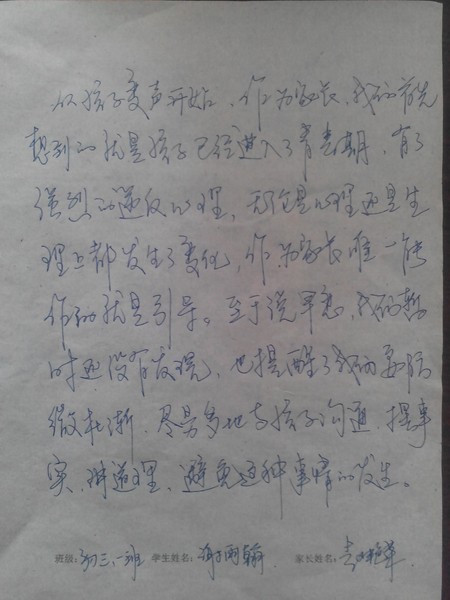 从孩子变声开始,作为家长,我们首先
想到的就是孩子已经进入了青春期,有了
强烈的逆反心理,无论是心理还是生
理上都发生了变化,作为家长唯一能
作的就是引导。至于说早恋,我们暂
时还没有发现,也提醒了我们要防
微杜渐,尽量多地与孩子沟通,摆事
实,讲道理,避免这种事情的发生。
班级:初三、一班 学生姓名: 家长姓名: